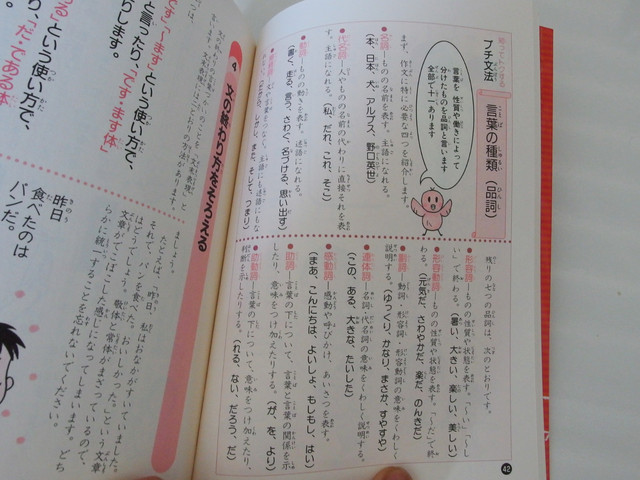 知ってトクする
プチ文法
言葉の種類（品詞）
言葉を性質や働きによって
分けたものを品詞と言います
全部で十一あります
まず、作文に特に必要な四つを紹介します。
●名詞―ものの名前を表す。主語になれる。
（本、日本、犬、アルプス、野口英世）
●代名詞―人やものの名前の代わりに直接それを表
す。主語になれる。（私、だれ、これ、そこ）
●動詞―ものの動きを表す。述語になれる。
（書く、走る、言う、さわぐ、名づける、思い出す）
残りの七つの品詞は、次のとおりです。
●形容詞―ものの性質や状態を表す。「～い」「～し
い」で終わる。（暑い、大きい、楽しい、美しい）
●形容動詞―ものの性質や状態を表す。「～だ」で終
わる。（元気だ、さわやかだ、楽だ、のんきだ）
●副詞―動詞・形容詞・形容動詞の意味をくわしく
説明する。（ゆっくり、かなり、まさか、すやすや）
●連体詞―名詞・代名詞の意味をくわしく説明する。
（この、ある、大きな、たいした）
●感動詞―感動や呼びかけ、あいさつを表す。
（まあ、こんにちは、よいしょ、もしもし、はい）
●助詞―言葉の下について、言葉と言葉の関係を示
したり、意味をつけ加えたりする。（が、を、より）
●助動詞―言葉の下について、意味をつけ加えたり、
判断を示したりする。（れる、ない、だろう、だ）
42
4 文の終わり方をそろえる
です」「～ます」という使い方で、
と言ったり、「です・ます体」
します。
る」という使い方で、
り、「だ・である体
ましょう。
たとえば、「昨日、私はおなかがすいていました。
それで、パンを食べた。おいしかった。」という文章
はどうでしょう。敬体と常体がまざってしまっているので、
文章がでこぼこした感じになってしまいます。どち
らかに統一することを忘れないでください。
昨日
食べたのは
パンだ。